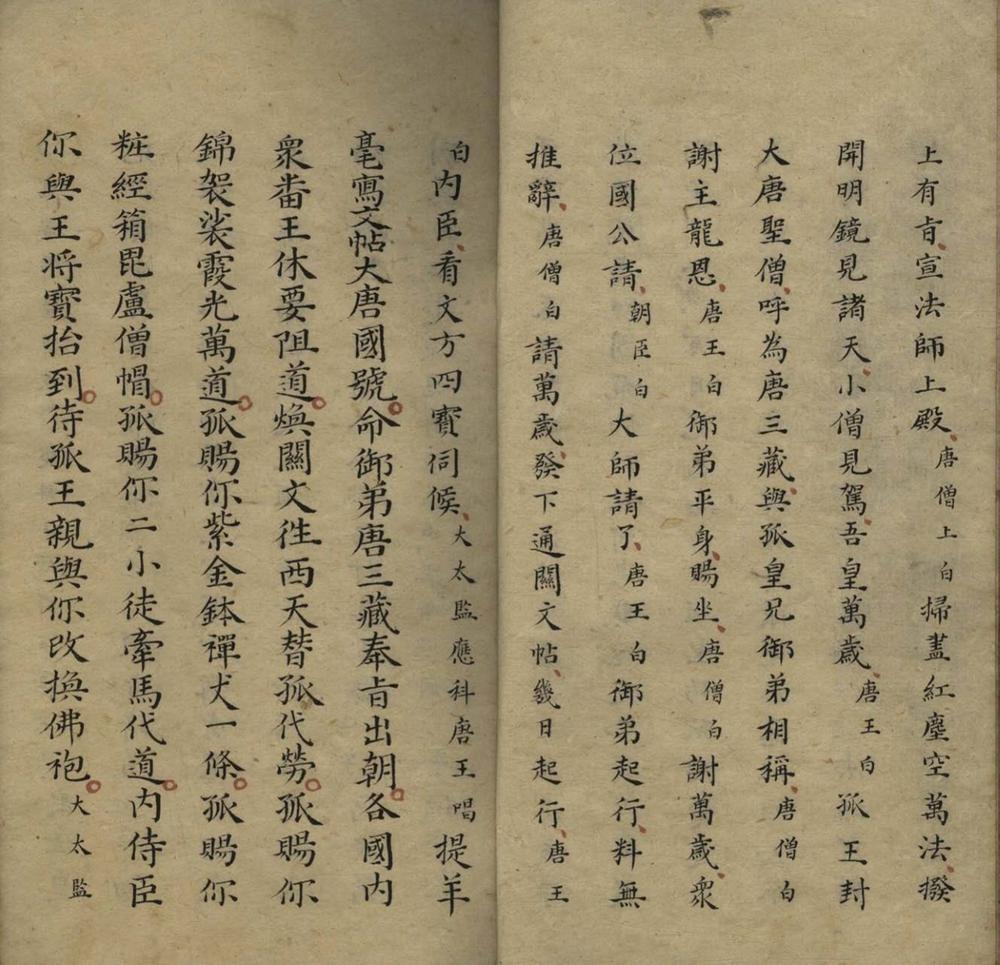 上有旨宣法師上殿唐僧上白掃盡紅塵空萬法撥
開明鏡見諸天小僧見駕吾皇萬歲唐王白孤王封
大唐聖僧呼為唐三藏與孤皇兄御弟相稱唐僧白
謝主龍恩唐王白御弟平身賜坐唐僧白謝萬歲衆
位國公請朝臣白大師請了唐王白御弟起行料無
推辭唐僧白請萬歲發下通關文帖幾日起行唐王
白内臣看文方四寳伺候大太監應科唐王唱提羊
毫寫文帖大唐國號命御弟唐三藏奉旨出朝各國内
衆畨王休要阻道煥關文徃西天替孤代勞孤賜你
錦袈裟霞光萬道孤賜你紫金鉢禪犬一條孤賜你
粧經箱毘盧僧帽孤賜你二小徒牽馬代道内侍臣
你與王將寳抬到待孤王親與你改換佛袍大太監